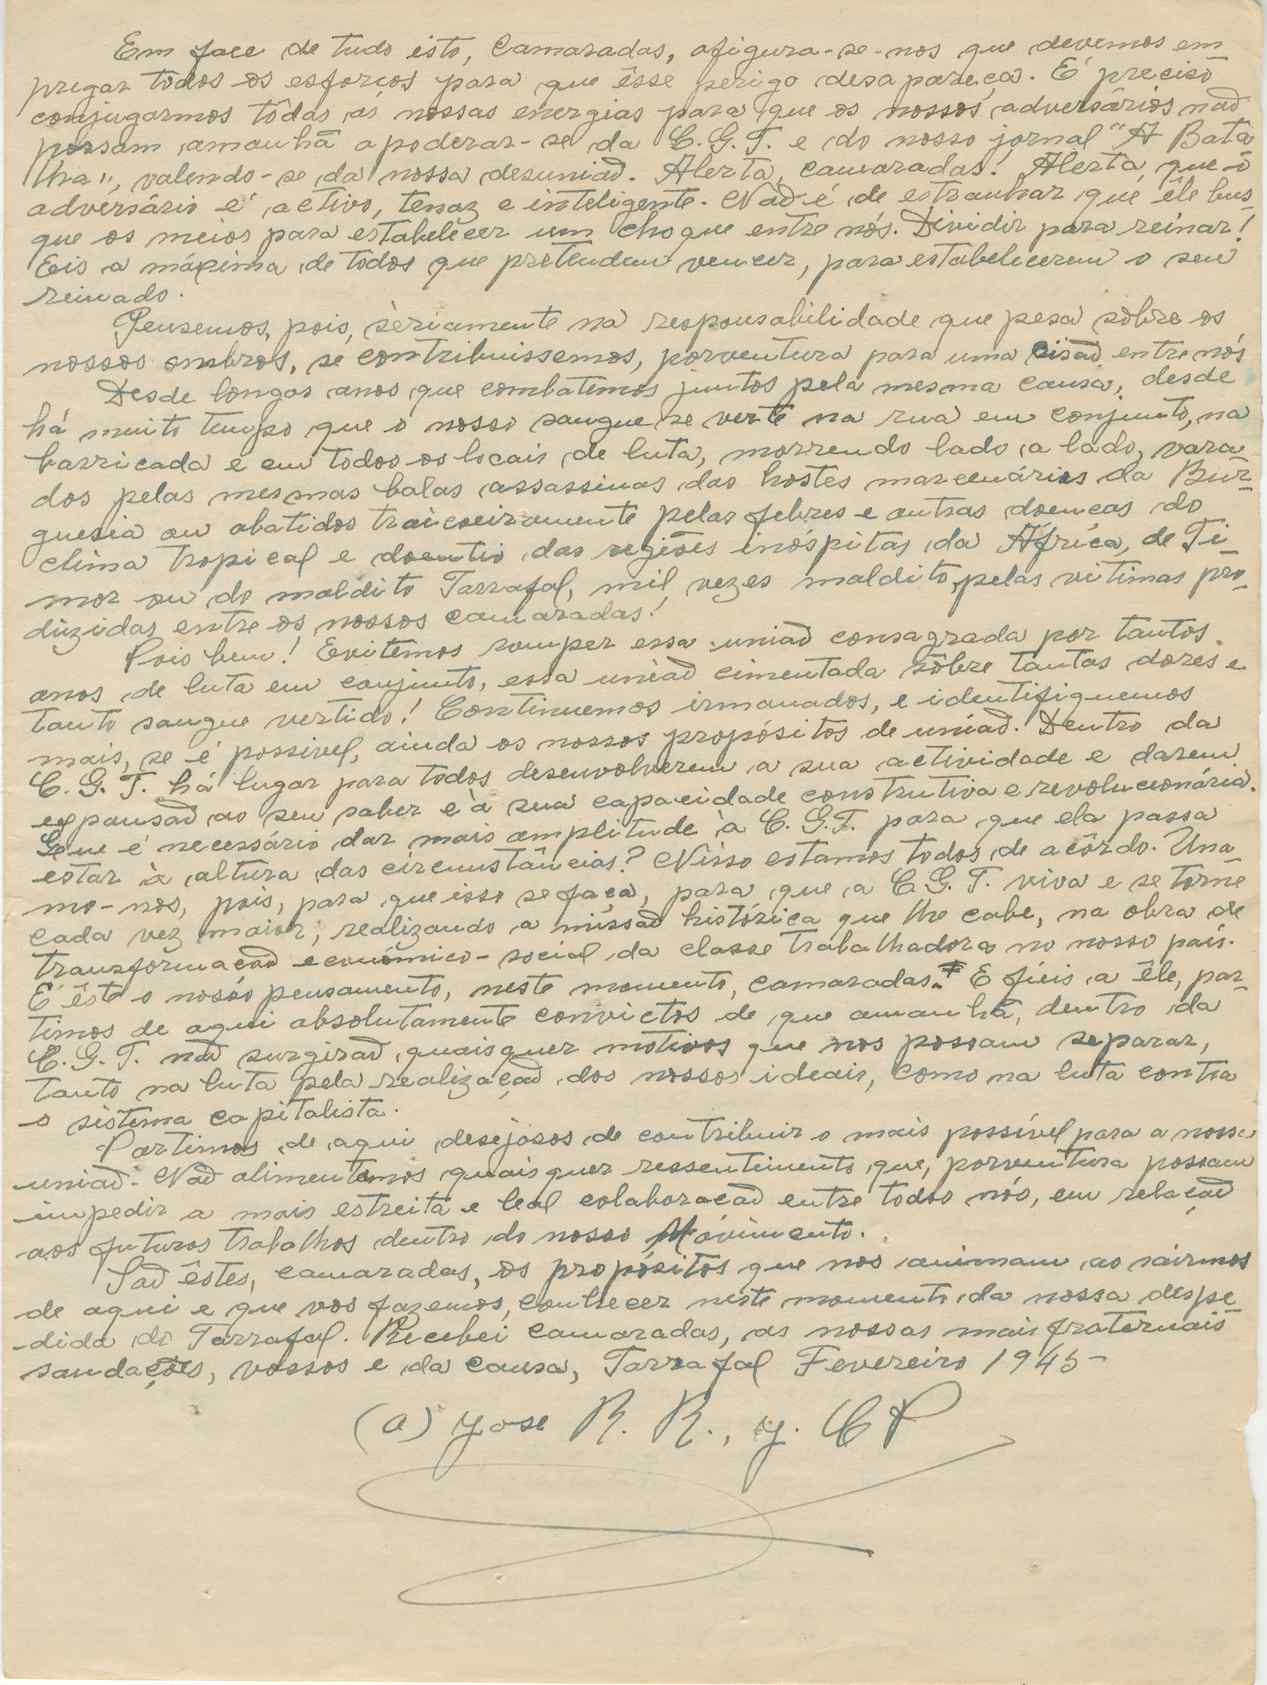 Em face de tudo isto, Camaradas, afigura-se-nos que devemos em
pregar todos os esforços para que êsse perigo desapareça. É preciso
conjugarmos tôdas as nossas energias para que os nossos adversários não
possam amanhã apoderar-se da C. G. T. e do nosso jornal "A Bata
lha", valendo-se da nossa desunião. Alerta, camaradas! Alerta, que o
adversário é activo, tenaz e inteligente. Não é de estranhar que êle bus-
que os meios para estabelecer um choque entre nós. Dividir para reinar!
Eis a máxima de todos que pretendem vencer, para estabelecerem o seu
reinado.
Pensemos, pois, sèriamente na responsabilidade que pesa sôbre os
nossos ombros, se contribuissemos, porventura para uma cisão entre nós
Desde longos anos que combatemos juntos pela mesma causa; desde
há muito tempo que o nosso sangue se verte na rua em conjunto, na
barricada e em todos os locais de luta, morrendo lado a lado, vara
dos pelas mesmas balas assassinas das hostes marcenárias da Bur-
guesia ou abatidos traiçoeiramente pelas febres e outras doenças do
clima tropical e doentio das regiões inóspitas da África, de Ti-
mor ou do maldito Tarrafal, mil vezes maldito, pelas vitimas pro-
duzidas entre os nossos camaradas!
Pois bem! Evitemos romper essa união consagrada por tantos
anos de luta em conjunto, essa união cimentada sôbre tantas dores e
tanto sangue vertido! Continuemos irmanados, e identifiquemos
mais, se é possivel, ainda os nossos propósitos de união. Dentro da
C. G. T. há lugar para todos desenvolverem a sua actividade e darem
expansão ao seu saber e à sua capacidade construtiva e revolucionária.
Que é necessário dar mais amplitude à C. G. T. para que ela passa
estar à altura das circunstâncias? Nisso estamos todos de acôrdo. Una
mo-nos, pois, para que isso se faça, para que a C. G. T. viva e se torne
cada vez maior, realizando a missão histórica que lhe cabe, na obra de
transformação económico-social da classe trabalhadora no nosso país.
É êste o nosso pensamento, neste momento, camaradas. E fieis a êle, par-
timos de aqui absolutamente convictos de que amanhã, dentro da
C. G. T. não surgirão quaisquer motivos que nos possam separar,
tanto na luta pela realização dos nossos ideais, como na luta contra
o sistema capitalista.
Partimos de aqui desejosos de contribuir o mais possível para a nossa
união. Não alimentamos quaisquer ressentimento que, porventura possam
impedir a mais estreita e leal colaboração entre todos nós, em relação
aos futuros trabalhos dentro do nosso Movimento.
São êstes, camaradas, os propósitos que nos animam ao sairmos
de aqui e que vos fazemos, conhecer neste momento da nossa despe-
dida do Tarrafal. Recebei camaradas, as nossas mais fraternais
saudações, vossos e da causa, Tarrafal Fevereiro 1945-
(a) Jose R. R., J. C P